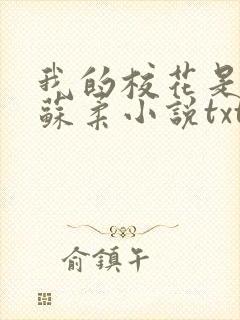 我的校花是
蘇柔小說txt
俞鎮午